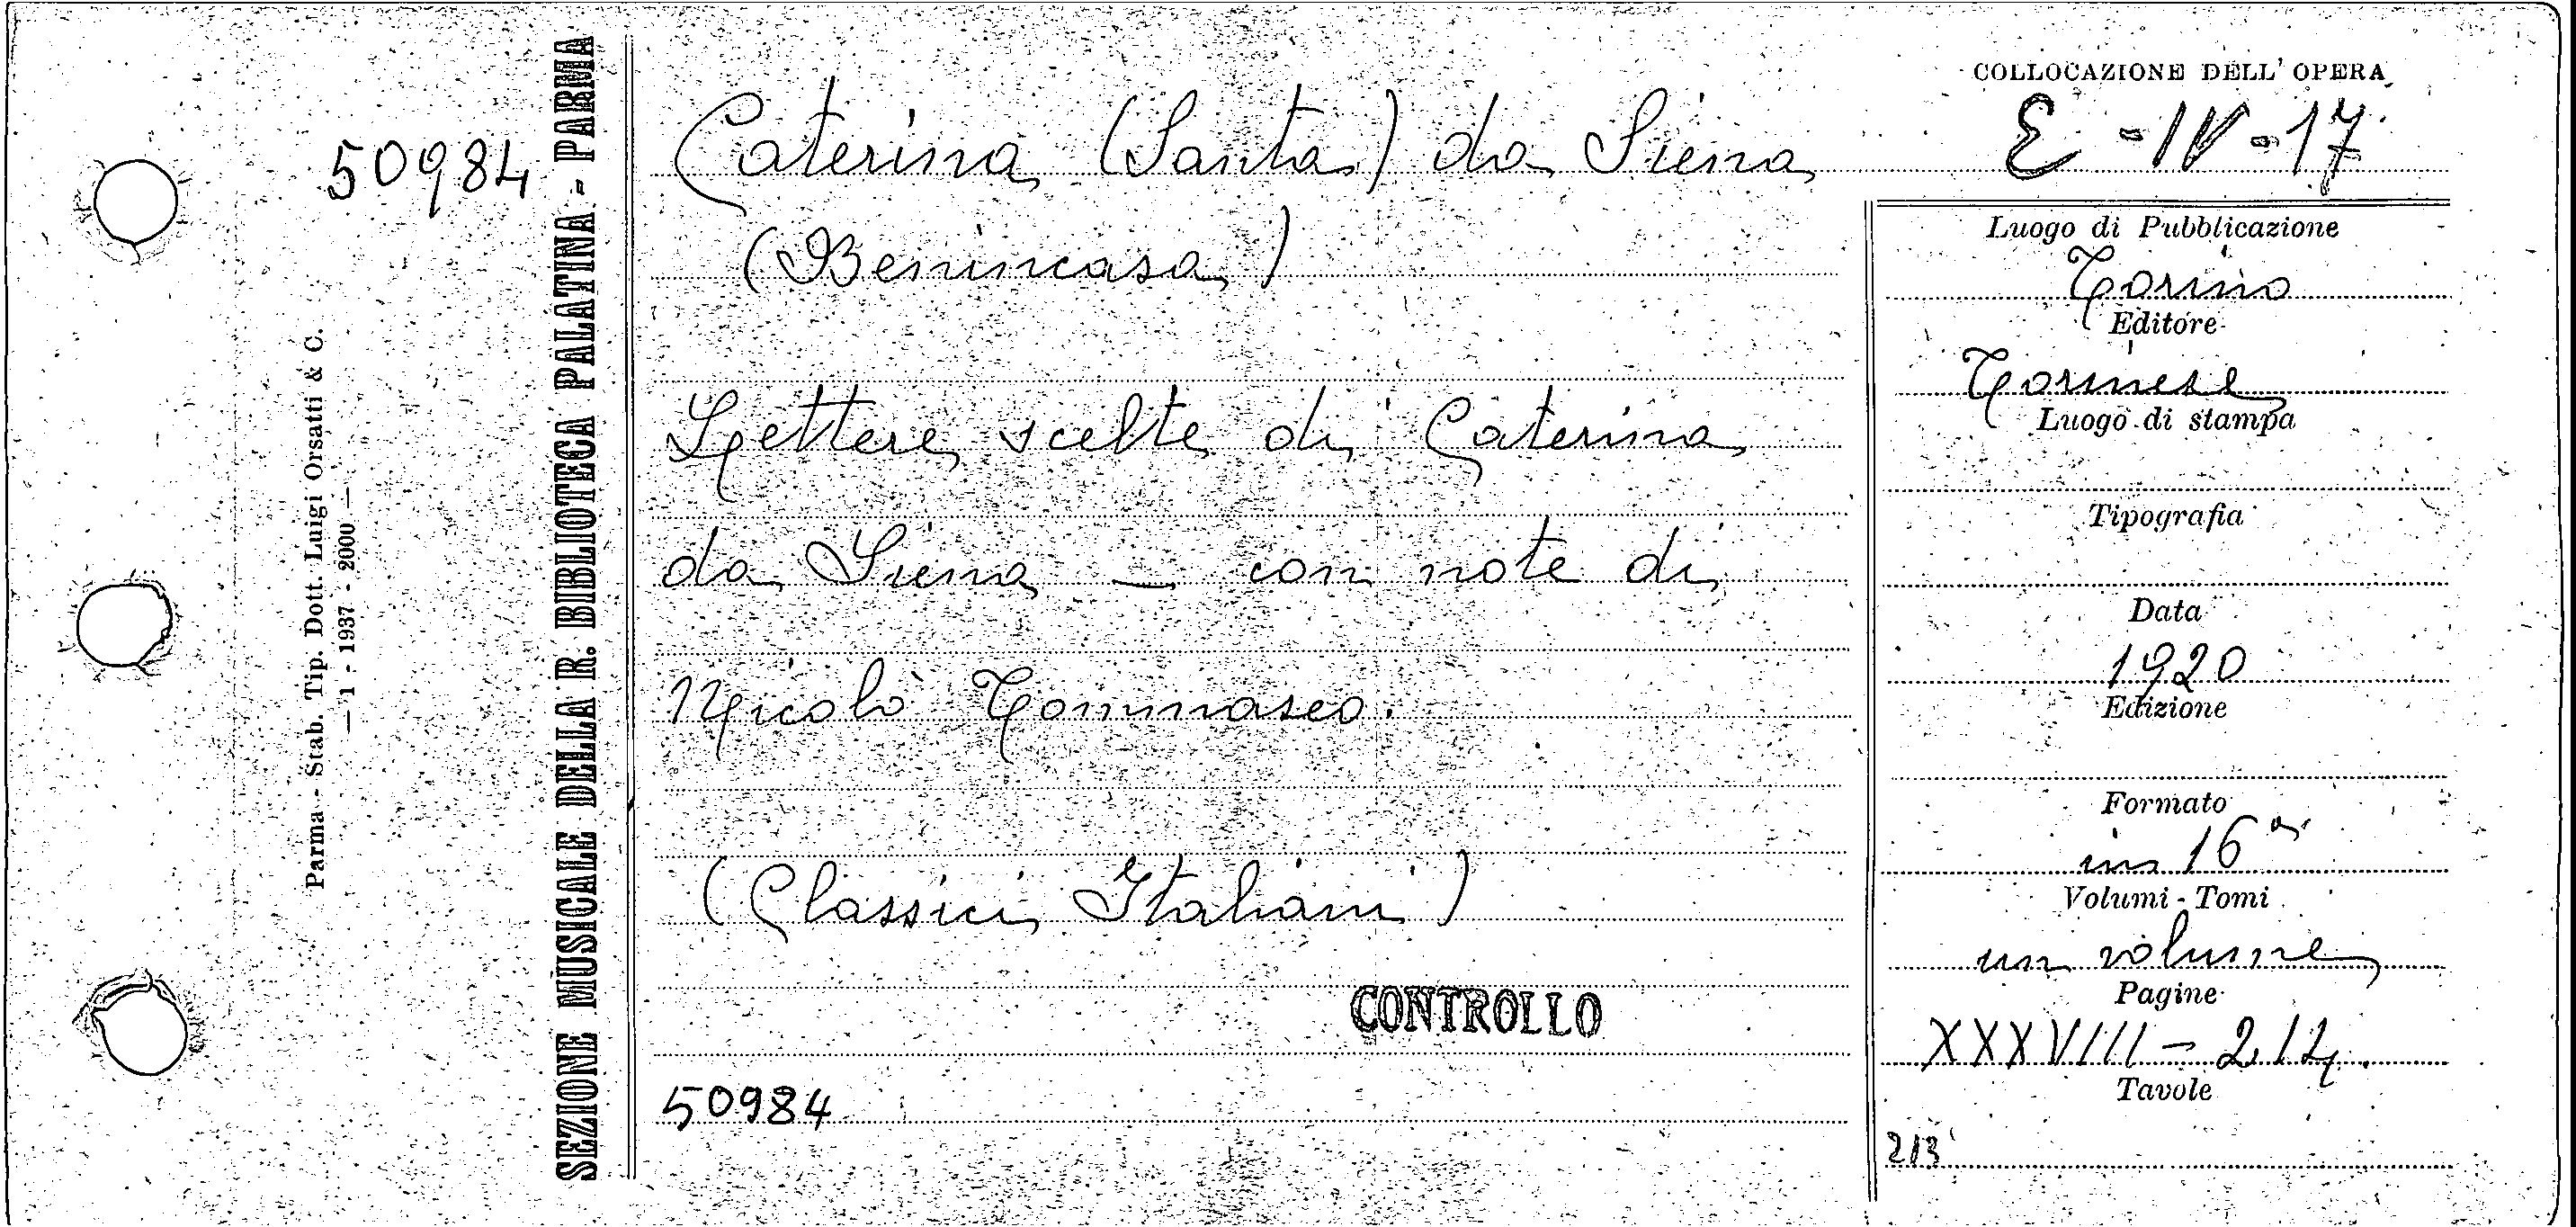 50984
Parma - Stab. Tip. Dott. Luigi Orsatti & C.
— 1 - 1937 - 2000 —
SEZIONE MUSICALE DELLA R. BIBLIOTECA PALATINA - PARMA
Caterina (Santa) da Siena
(Benincasa)
Lettere scelte di Caterina
da Siena — con note di
Nicolò Tommaseo.
(Classici Italiani)
CONTROLLO
50984
COLLOCAZIONE DELL' OPERA
E - IV - 17
Luogo di Pubblicazione
Torino
Editore
Torinese
Luogo di stampa
Tipografia
Data
1920
Edizione
Formato
in 16°
Volumi - Tomi
un volume
Pagine
XXXVIII - 214.
Tavole
213